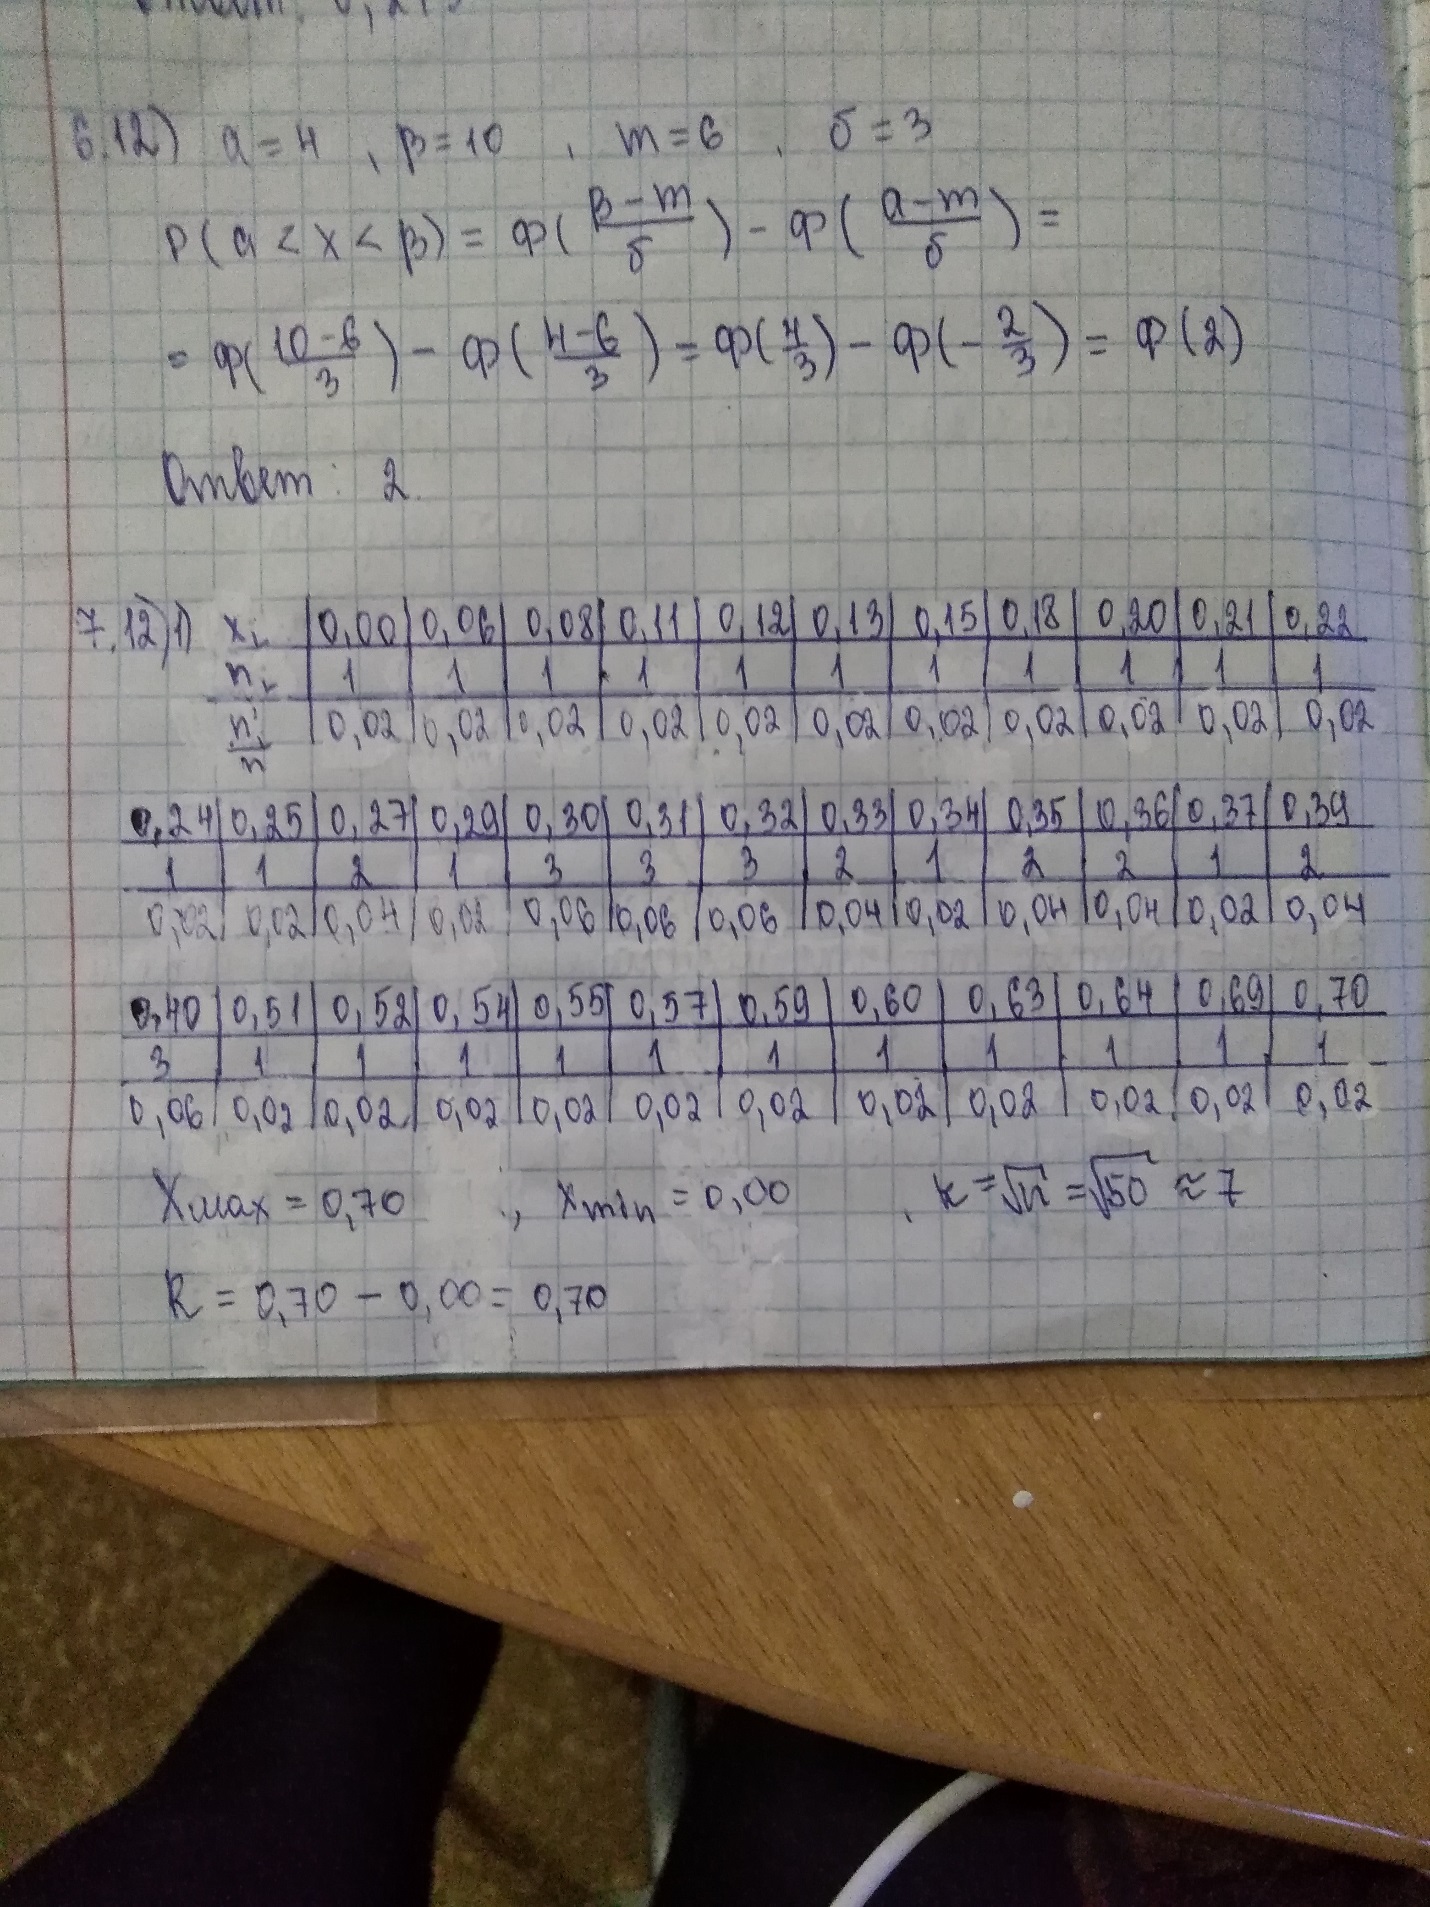 6.12) a = 4 , β = 10 , m = 6 , б = 3
P(a < x < β) = Ф((β - m)/б) - Ф((a - m)/б) =
= Ф((10-6)/3) - Ф((4-6)/3) = Ф(4/3) - Ф(-2/3) = Ф(2)
Ответ: 2.
7.12) 1) xᵢ | 0,00 | 0,06 | 0,08 | 0,11 | 0,12 | 0,13 | 0,15 | 0,18 | 0,20 | 0,21 | 0,22
nᵢ | 1 | 1 | 1 | 1 | 1 | 1 | 1 | 1 | 1 | 1 | 1
nᵢ/n | 0,02 | 0,02 | 0,02 | 0,02 | 0,02 | 0,02 | 0,02 | 0,02 | 0,02 | 0,02 | 0,02
0,24 | 0,25 | 0,27 | 0,29 | 0,30 | 0,31 | 0,32 | 0,33 | 0,34 | 0,35 | 0,36 | 0,37 | 0,39
1 | 1 | 2 | 1 | 3 | 3 | 3 | 2 | 1 | 2 | 2 | 1 | 2
0,02 | 0,02 | 0,04 | 0,02 | 0,06 | 0,06 | 0,06 | 0,04 | 0,02 | 0,04 | 0,04 | 0,02 | 0,04
0,40 | 0,51 | 0,52 | 0,54 | 0,55 | 0,57 | 0,59 | 0,60 | 0,63 | 0,64 | 0,69 | 0,70
3 | 1 | 1 | 1 | 1 | 1 | 1 | 1 | 1 | 1 | 1 | 1
0,06 | 0,02 | 0,02 | 0,02 | 0,02 | 0,02 | 0,02 | 0,02 | 0,02 | 0,02 | 0,02 | 0,02
Xmax = 0,70 , xmin = 0,00 , k = √n = √50 ≈ 7
R = 0,70 - 0,00 = 0,70